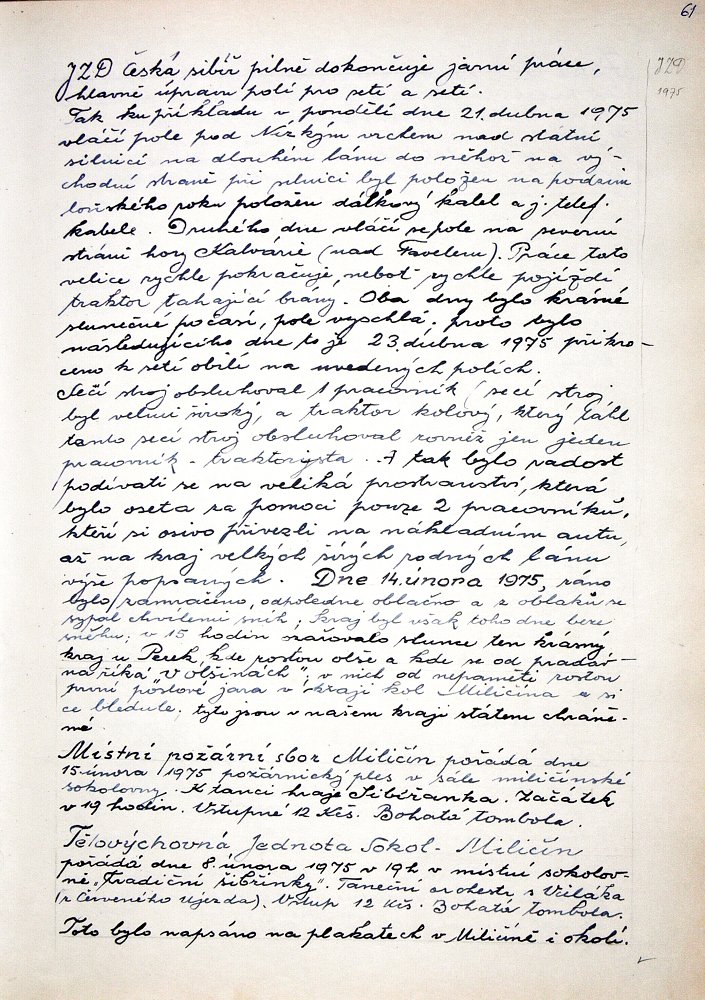 61
JZD
1975
JZD Česká sibiř pilně dokončuje jarní práce,
hlavně úpravu polí pro setí a setí.
Tak ku příkladu v pondělí dne 21. dubna 1975
vláčí pole pod Nízkým vrchem nad státní
silnicí na dlouhém lánu do něhož na vý-
chodní straně při silnici byl položen na podzim
loňského roku položen dálkový kabel a j. telef.
kabele. Druhého dne vláčí se pole na severní
stráni hory Kalvárie (nad Favelem). Práce tato
velice rychle pokračuje, neboť rychle pojíždí
traktor tahající brány. Oba dny bylo krásné
slunečné počasí, pole vyschlá, proto bylo
následujícího dne to je 23. dubna 1975 přikro-
čeno k setí obilí na uvedených polích.
Secí stroj obsluhoval 1 pracovník (secí stroj
byl velmi široký, a traktor kolový, který táhl
tento secí stroj obsluhoval rovněž jen jeden
pracovník - traktorista. A tak bylo radost
podívati se na veliká prostranství, která
bylo oseta za pomoci pouze 2 pracovníků,
kteří si osivo přivezli na nákladním autu,
až na kraj velkých širých rodných lánu
výše popsaných. Dne 14. února 1975, ráno
bylo zamračeno, odpoledne oblačno a z oblaků se
sypal chvílemi sníh; kraj byl však toho dne beze
sněhu; v 15 hodin ozařovalo slunce ten krásný
kraj u Perek, kde rostou olše a kde se od pradáv-
na říká "V olšinách"; v nich od nepaměti rostou
první poslové jara v kraji kol Miličína a si
ce bledule, tyto jsou v našem kraji státem chráně-
né.
Místní požární sbor Miličín pořádá dne
15. února 1975 požárnický ples v sále miličínské
sokolovny. K tanci hraje Sibiřanka. Začátek
v 19 hodin. Vstupné 12 Kčs. Bohatá tombola.
Tělovýchovná Jednota Sokol - Miličín
pořádá dne 8. února 1975 v 19 h. v místní sokolov-
ně "tradiční šibřinky". Taneční orchestr s
(z Červeného Újezda). Vstup 12 Kčs. Bohatá tombola.
Toto bylo napsáno na plakatech v Miličíně i okolí.